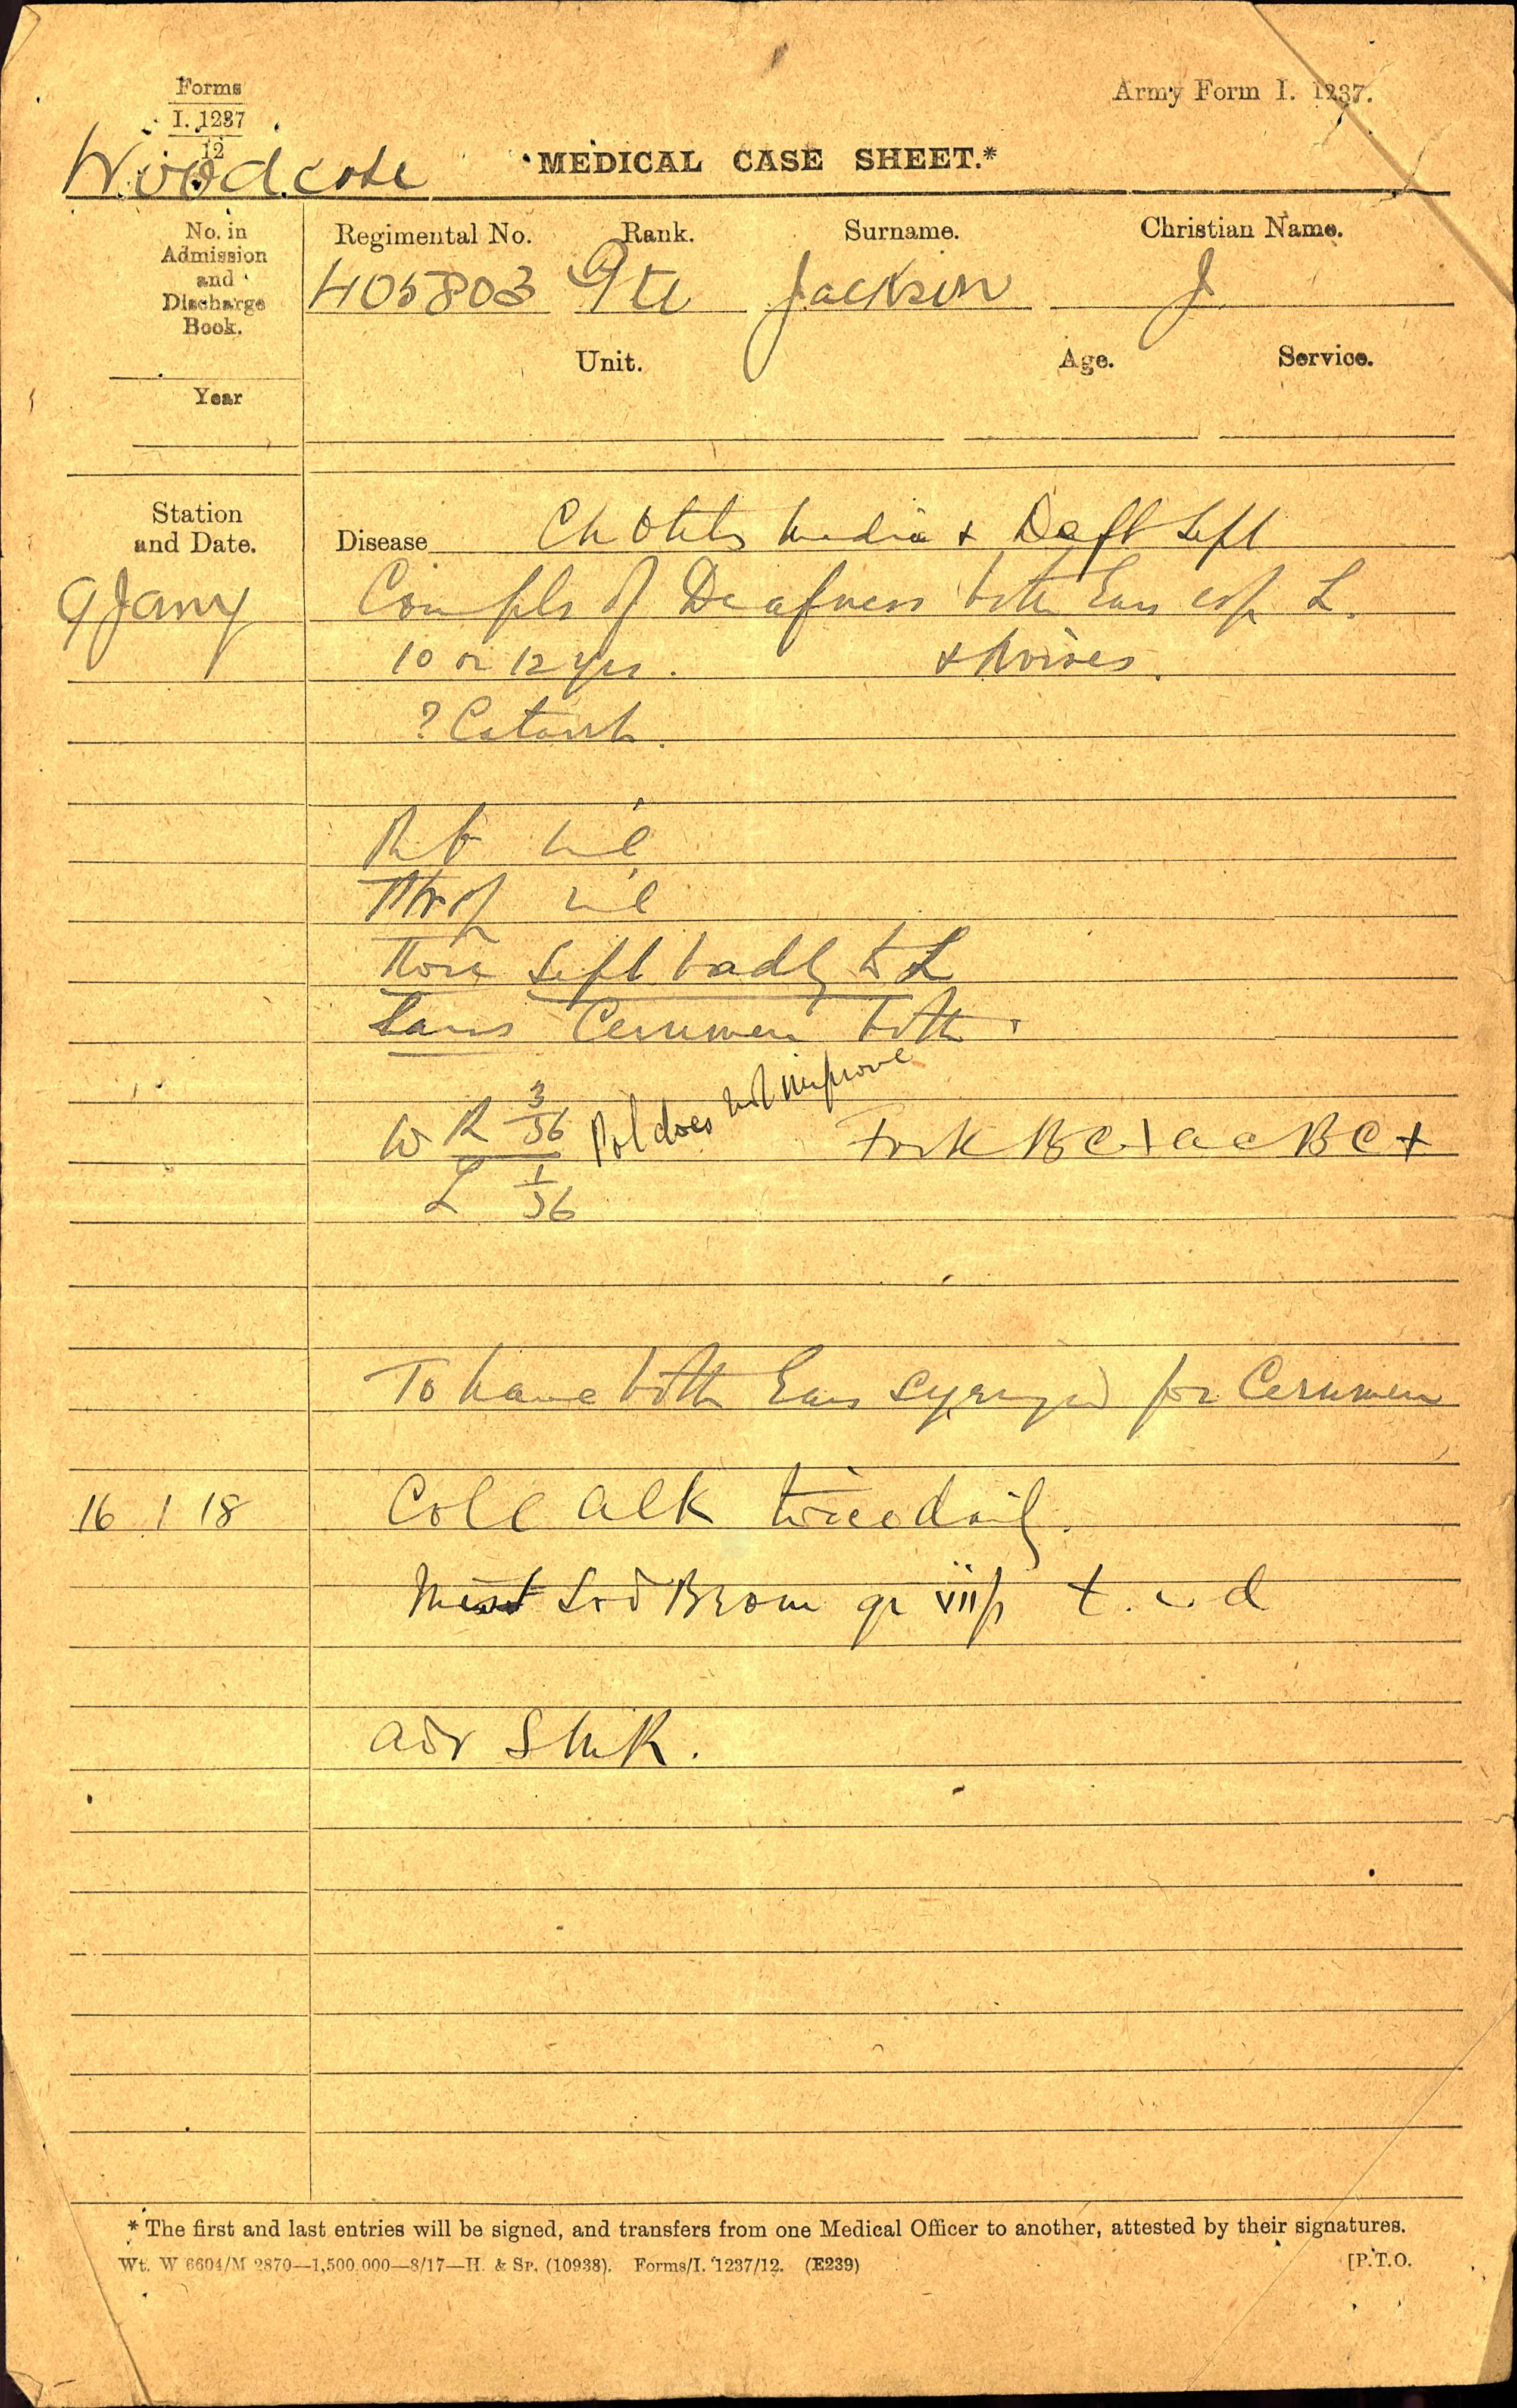 Forms
I. 1237
12
Army Form I. 1237.
Woodcote
MEDICAL CASE SHEET.*
No. in
Admission
and
Discharge
Book.
Year
Regimental No. Rank. Surname. Christian Name.
405803 Pte Jackson J
Unit. Age. Service.
Station
and Date.
Disease Ch Otitis Media & Defl Sept
9 Jany Compls of Deafness both Ears esp L.
10 or 12 yrs. & Noises.
? Catarrh.
nil
nil
Nose Sept badly to L
Ears Cerumen both
W R 3/36 Pol does not improve Fork BC + a c BC +
L 1/36
To have both Ears syringed for Cerumen
16 1 18 Coll Alk twice daily.
Mist Sod Brom gr viiß t.i.d
adv SMR.
* The first and last entries will be signed, and transfers from one Medical Officer to another, attested by their signatures.
Wt. W 6604/M 2870—1,500,000—8/17—H. & Sp. (10938). Forms/I. 1237/12. (E239)
[P.T.O.